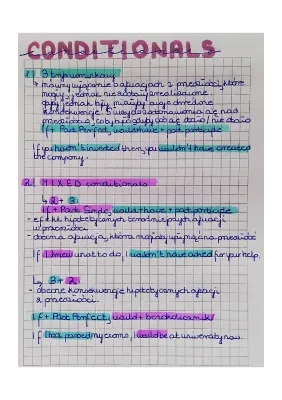 CONDITIONALS
1) 3 tryb warunkowy
↳ mówimy w sytuacjach z przeszłości, które
mogły jednak nie zostały zrealizowane
gdyby jednak były, miałyby swoje określone
konsekwencje.
przeszłością, co by było gdyby coś się działo/nie działo
If + Past Perfect, would have + past participle
If you hadn't invested then, you wouldn't have created
the company.
2) MIXED conditionals
↳ 2 + 3
If + Past Simple, would have + past participle
- efekt hipotetycznych sytuacji
w przeszłości
- obecna sytuacja, która mogłaby wpłynąć na przeszłość
If I knew what to do, I wouldn't have asked for your help.
↳ 3 + 2
- obecne konsekwencje hipotetycznych sytuacji
z przeszłości.
If + Past Perfect, would + bezokolicznik
If I had passed my exams, I would be at university now.